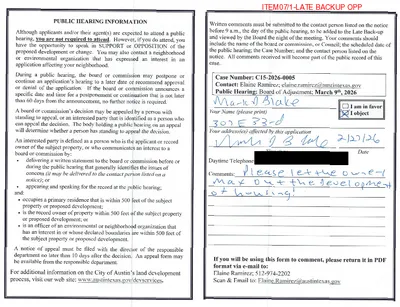 ITEM07/1-LATE BACKUP OPP
PUBLIC HEARING INFORMATION
Although applicants and/or their agent(s) are expected to attend a public
hearing, you are not required to attend. However, if you do attend, you
have the opportunity to speak in SUPPORT or OPPOSITION of the
proposed development or change. You may also contact a neighborhood
or environmental organization that has expressed an interest in an
application affecting your neighborhood.
During a public hearing, the board or commission may postpone or
continue an application's hearing to a later date or recommend approval
or denial of the application. If the board or commission announces a
specific date and time for a postponement or continuation that is not later
than 60 days from the announcement, no further notice is required.
A board or commission's decision may be appealed by a person with
standing to appeal, or an interested party that is identified as a person who
can appeal the decision. The body holding a public hearing on an appeal
will determine whether a person has standing to appeal the decision.
An interested party is defined as a person who is the applicant or record
owner of the subject property, or who communicates an interest to a
board or commission by:
• delivering a written statement to the board or commission before or
during the public hearing that generally identifies the issues of
concern (it may be delivered to the contact person listed on a
notice); or
• appearing and speaking for the record at the public hearing;
and:
• occupies a primary residence that is within 500 feet of the subject
property or proposed development;
• is the record owner of property within 500 feet of the subject property
or proposed development; or
• is an officer of an environmental or neighborhood organization that
has an interest in or whose declared boundaries are within 500 feet of
the subject property or proposed development.
A notice of appeal must be filed with the director of the responsible
department no later than 10 days after the decision. An appeal form
may be available from the responsible department.
For additional information on the City of Austin's land development
process, visit our web site: www.austintexas.gov/devservices.
Written comments must be submitted to the contact person listed on the notice
before 9 a.m. the day of the public hearing to be added to the Late Backup
and viewed by the Board the night of the meeting. Your comments should
include the name of the board or commission, or Council; the scheduled date of
the public hearing; the Case Number; and the contact person listed on the
notice. All comments received will become part of the public record of this
case.
Case Number: C15-2026-0005
Contact: Elaine Ramirez; elaine.ramirez@austintexas.gov
Public Hearing: Board of Adjustment; March 9th, 2026
Mark J Blake
Your Name (please print)
I am in favor
I object
307 E 33rd
Your address(es) affected by this application
2/27/26
Signature Date
Daytime Telephone:
Comments: Please let the owner
max out the development
of housing!
If you will be using this form to comment, please return it in PDF
format via e-mail to:
Elaine Ramirez; 512-974-2202
Scan & Email to: Elaine.Ramirez@austintexas.gov